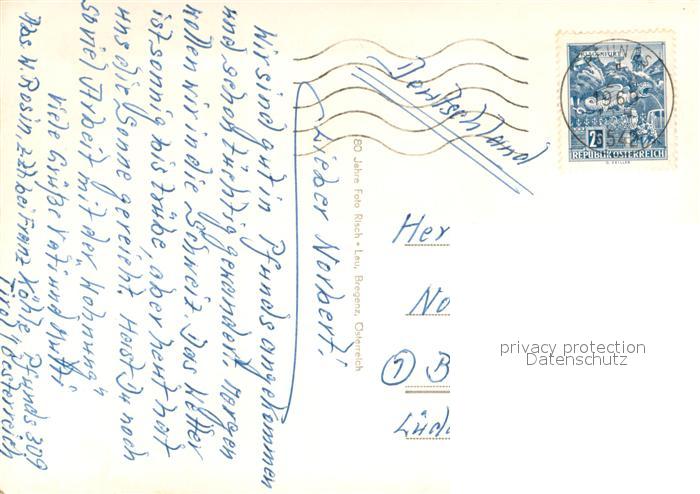 Lieber Norbert!
Wir sind gut in Pfunds angekommen
und schon tüchtig gewandert. Morgen
wollen wir in die Schweiz. Das Wetter
ist sonnig bis trübe, aber heut hat
uns die Sonne gereicht. Hast Du noch
so viel Arbeit mit der Wohnung"
Viele Grüße Kati und Mutti
Das H. Rosin, zZt. bei Franz Köhle Pfunds 309
Tirol, Österreich
80 Jahre Foto Risch • Lau, Bregenz, Österreich
Deutschland
KLAGENFURT
2S
REPUBLIK ÖSTERREICH
PFUNDS
Her
No
1 B
Lüd
privacy protection
Datenschutz